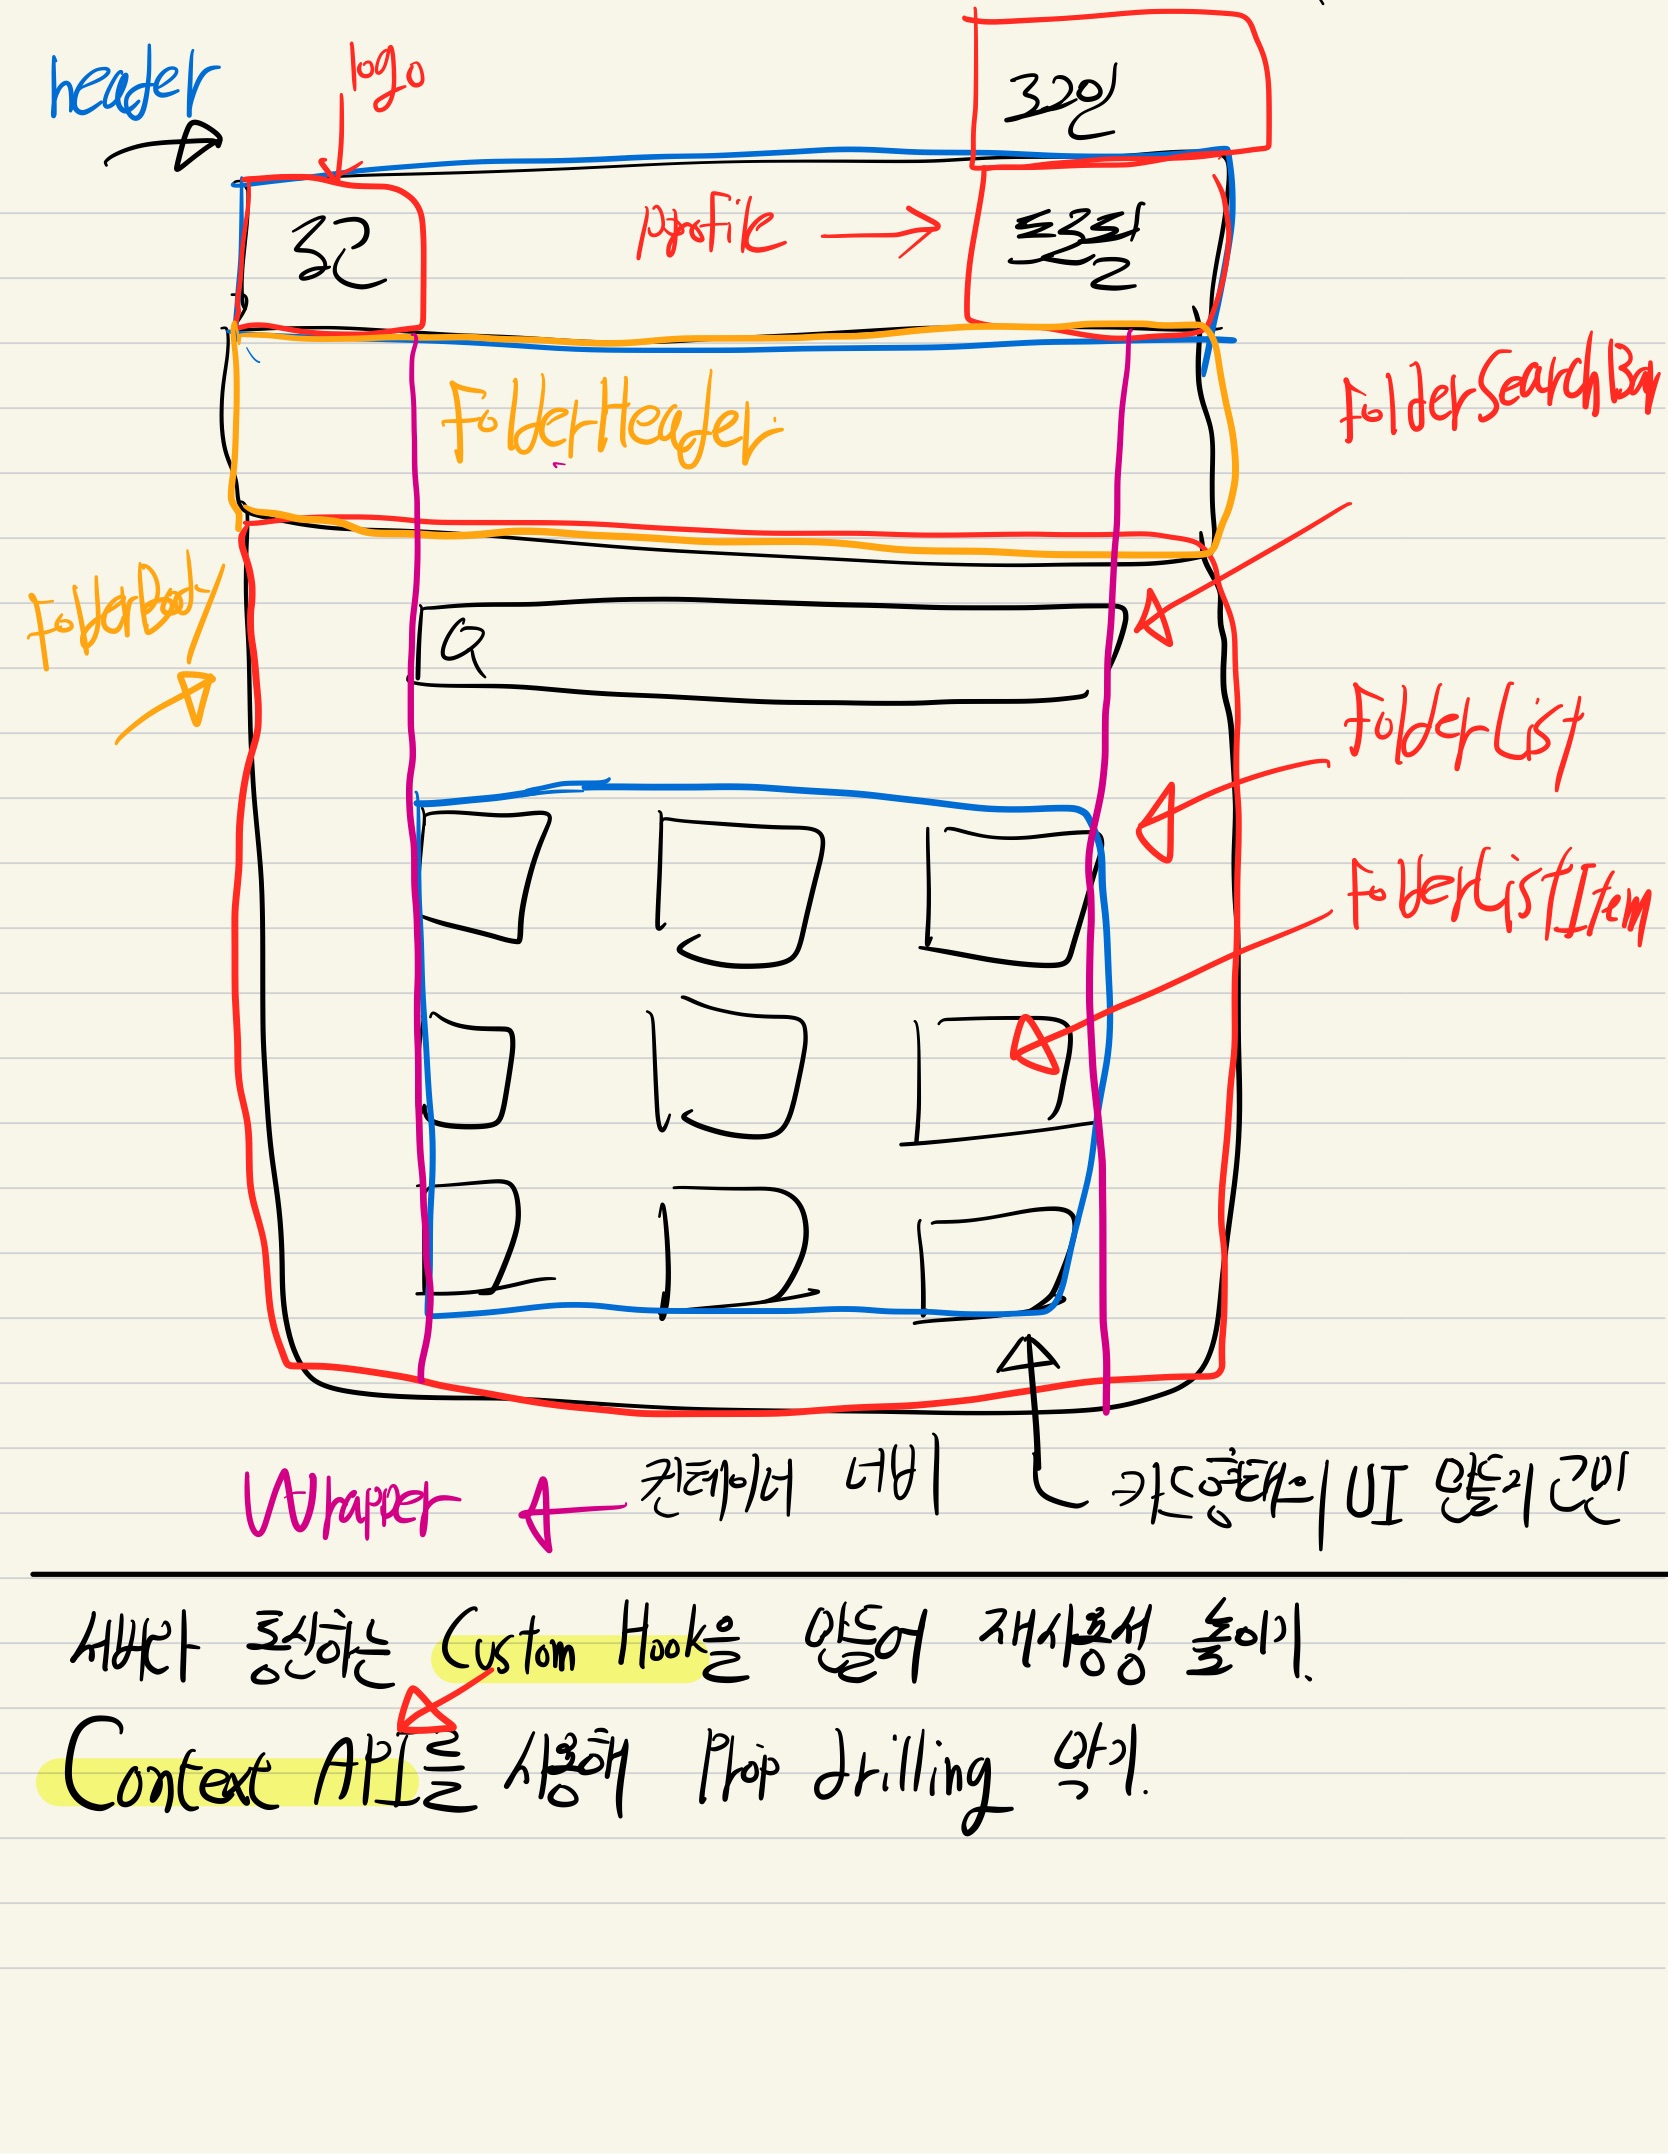 header
logo
로그인
로고
profile
프로필
FolderHeader
FolderSearchBar
FolderBody
Q
FolderList
FolderListItem
Wrapper 컨테이너 너비
카드형태의 UI 만들기 고민
서버와 통신하는 Custom Hook을 만들어 재사용성 높이기.
Context API를 사용해 Prop drilling 막기.